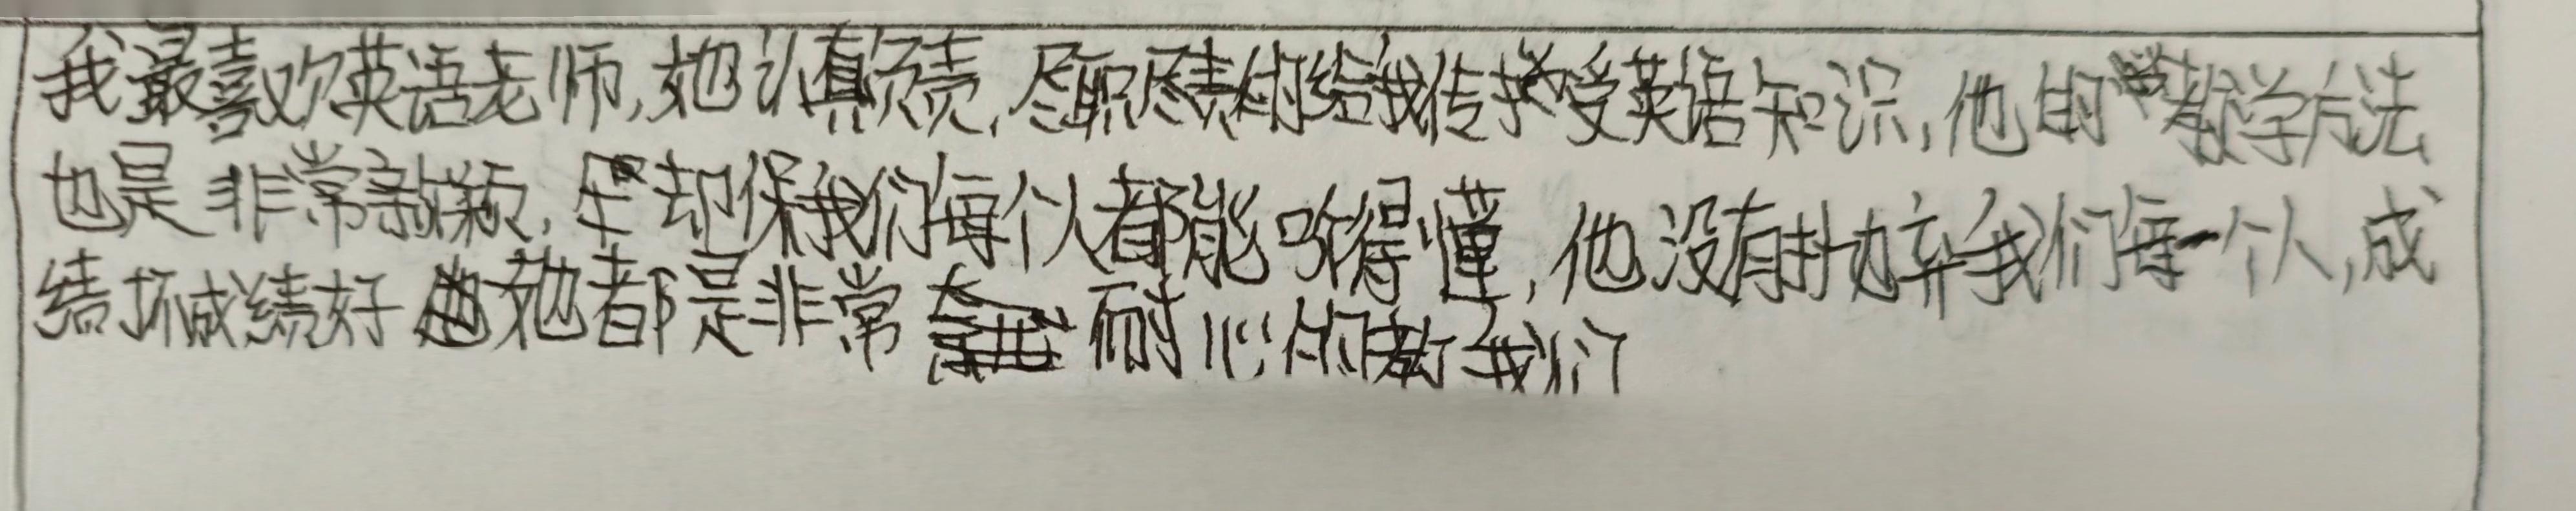 我最喜欢英语老师,她认真负责,尽职尽责的给我传受英语知识,他的教学方法
也是非常新颖,却保我们每个人都能听得懂,他没有抛弃我们每一个人,成
绩坏成绩好她都是非常耐心的教我们